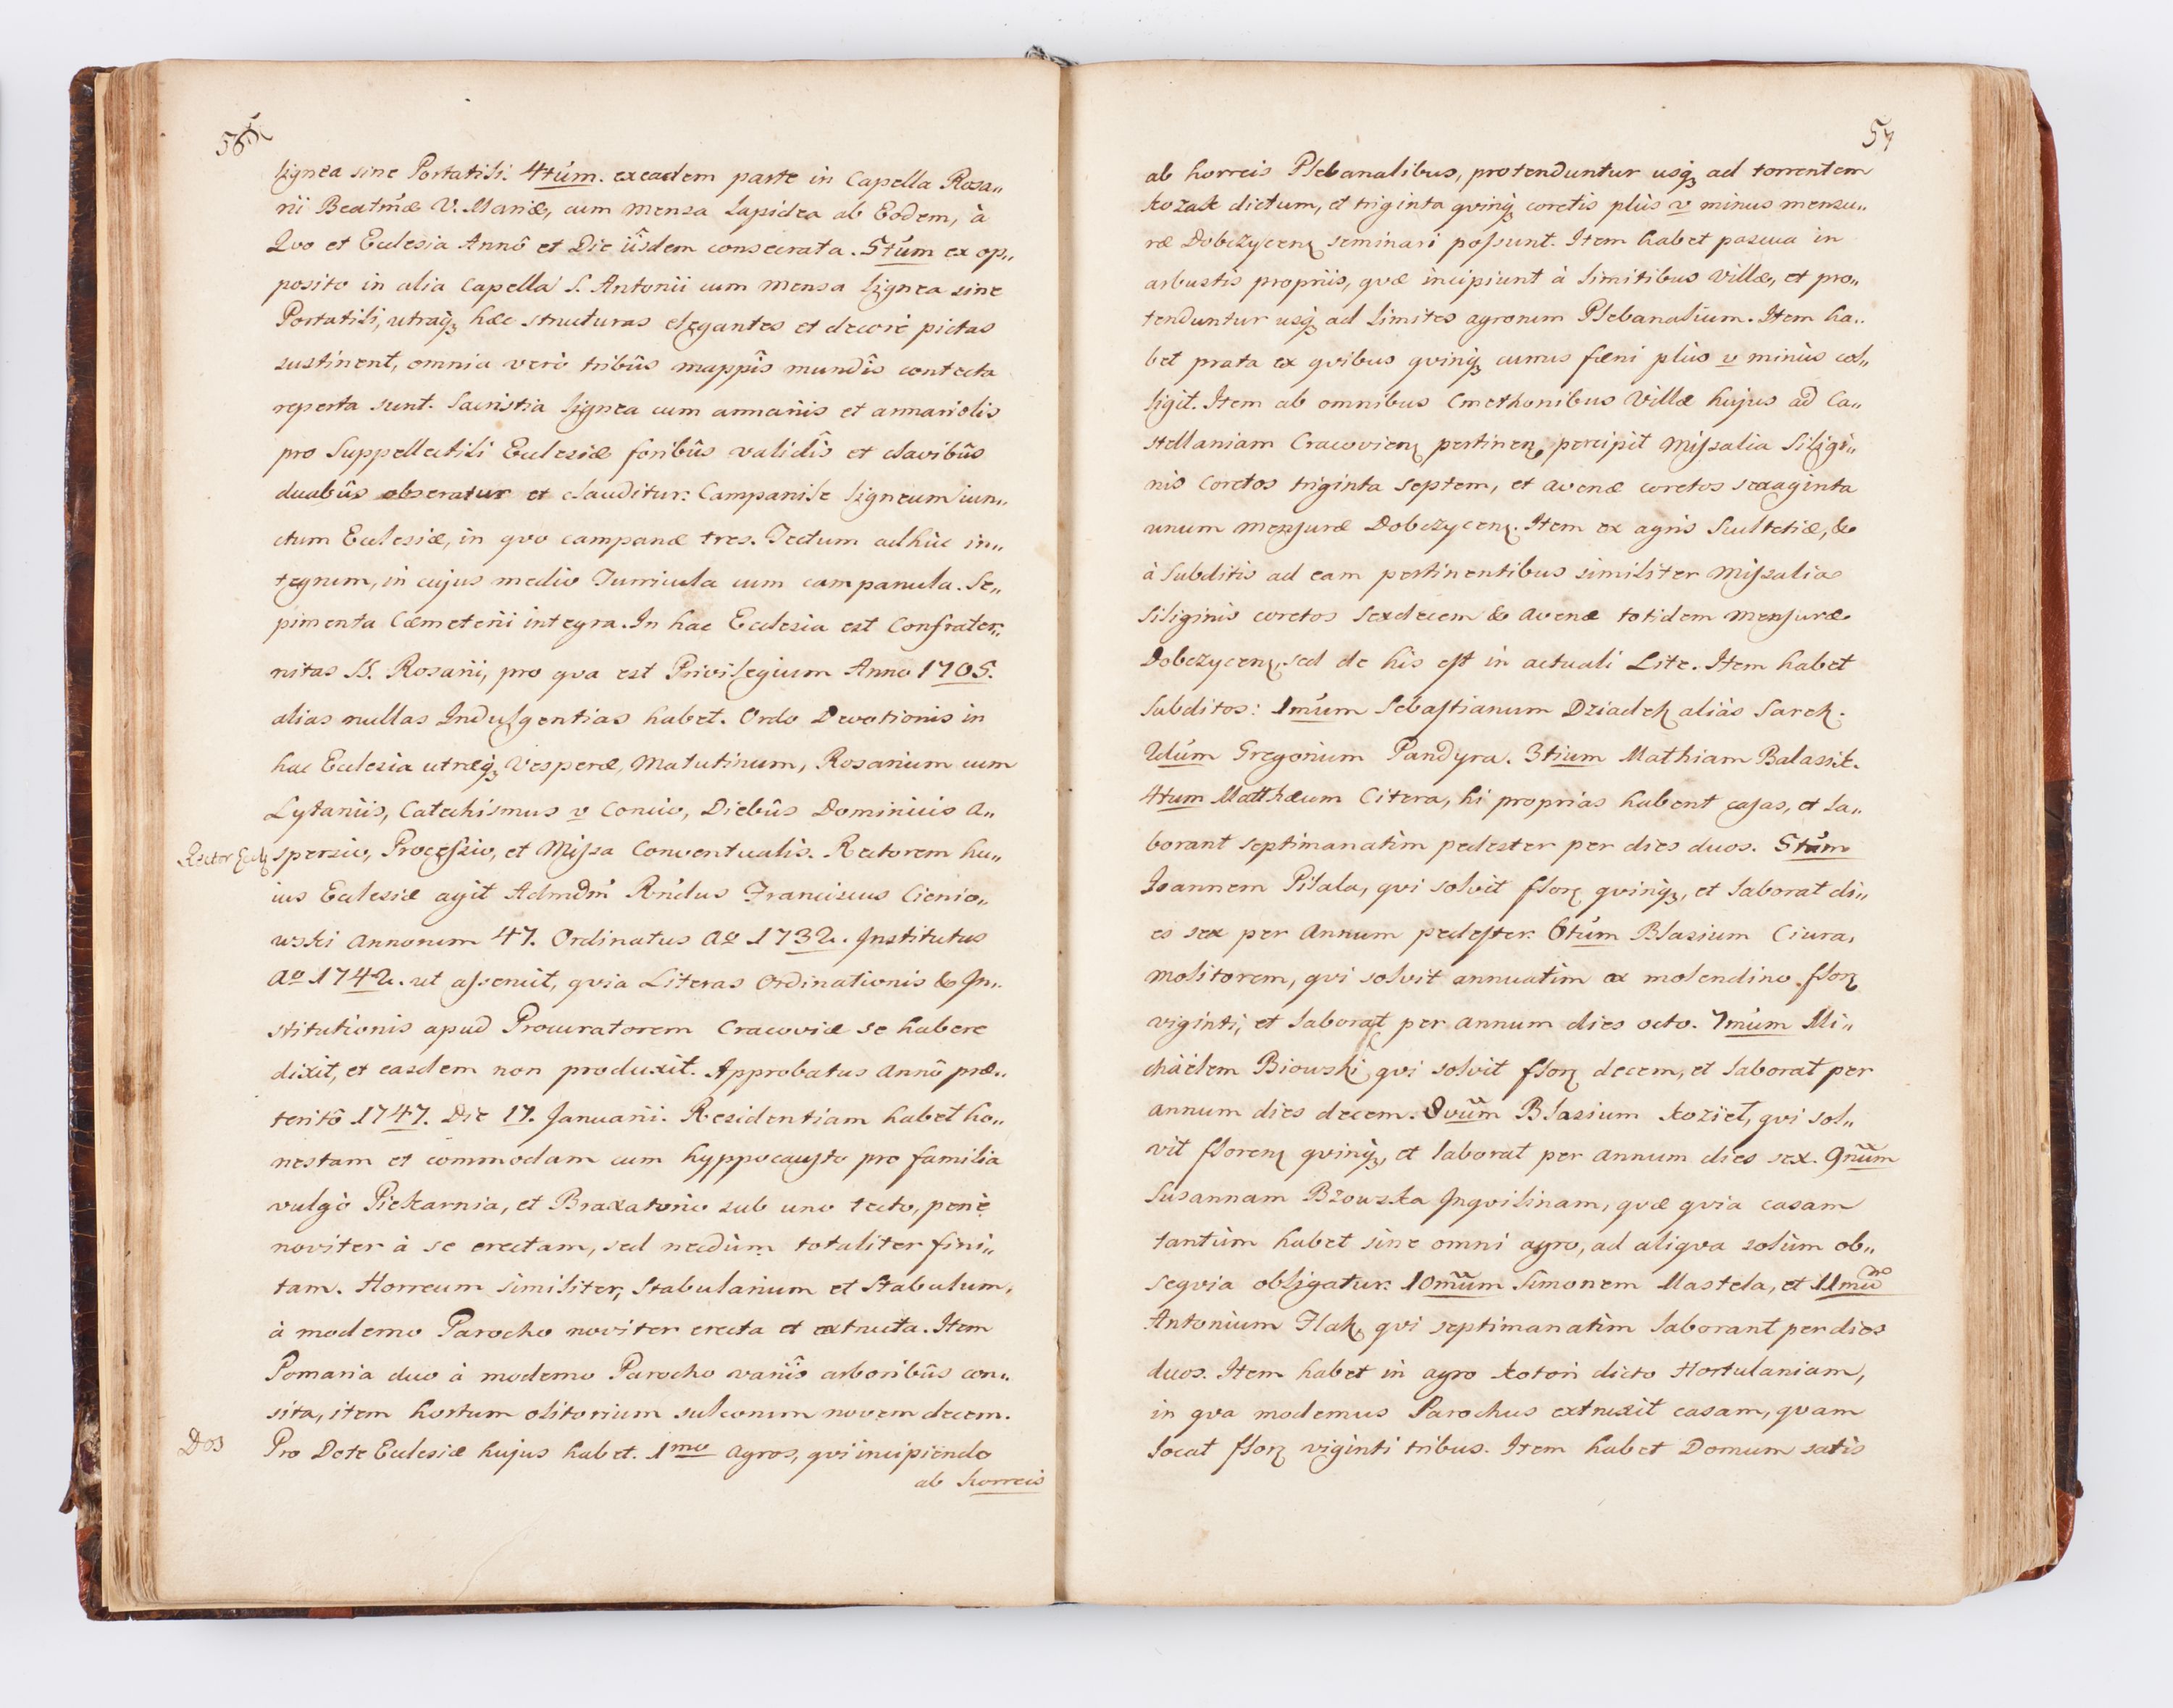 56
lignea sine Portatili. 4túm. ex eadem parte in Capella Rosa„
rii Beatmæ V. Mariæ, cum Mensa Lapidea ab Eodem, à
Quo et Ecclesia Annô et Die iîsdem consecrata. 5túm ex op„
posito in alia Capella S. Antonii cum Mensa Lignea sine
Portatili, utraq; hæc structuras elegantes et decorè pictas
sustinent, omnia verò tribûs mappîs mundîs contecta
reperta sunt. Sacristia Lignea cum armariis et armariolis
pro Suppellectili Ecclesiæ foribûs validîs et clavibûs
duabûs obseratur et clauditur. Campanile Ligneum iun„
ctum Ecclesiæ, in qvo campanæ tres. Tectum adhùc in„
tegrum, in cujus medio Turricula cum campanula. Se„
pimenta Cæmeterii integra. In hac Ecclesia est Confrater„
nitas SS. Rosarii, pro qva est Privilegium Anno 1705.
alias nullas Indulgentias habet. Ordo Devotionis in
hac Ecclesia utræq; Vesperæ, Matutinum, Rosarium cum
Lytaniis, Catechismus v Concio, Diebûs Dominicis A„
Rector Eccl
spersio, Processio, et Missa Conventualis. Rectorem hu„
ius Ecclesiæ agit Admdm Rndus Franciscus Cienio„
wski Annorum 47. Ordinatus Ao 1732. Institutus
Ao 1742. ut asseruit, qvia Literas Ordinationis & In„
stitutionis apud Procuratorem Cracoviæ se habere
dixit, et easdem non produxit. Approbatus Annô præ„
teritô 1747. Die 17. Januarii. Residentiam habet ho„
nestam et commodam cum hyppocausto pro familia
vulgò Piekarnia, et Braxatorio sub uno tecto, penè
noviter à se erectam, sed necdùm totaliter fini„
tam. Horreum similiter, Stabularium et Stabulum,
à moderno Parocho noviter erecta et extructa. Item
Pomaria duo à moderno Parocho variîs arboribûs con„
sita, item hortum olitorium sulcorum novem decem.
Dos
Pro Dote Ecclesiæ hujus habet. 1mo Agros, qvi incipiendo
ab horreis
57
ab horreis Plebanalibus, protenduntur usq; ad torrentem
Kozak dictum, et triginta qvinq; coretis plùs v minus mensu„
ræ Dobczycen seminari possunt. Item habet pascua in
arbustis propriis, qvæ incipiunt à limitibus Villæ, et pro„
tenduntur usq; ad limites agrorum Plebanalium. Item ha„
bet prata ex qvibus qvinq; currus fœni plùs v minùs col„
ligit. Item ab omnibus Cmethonibus Villæ hujus ad Ca„
stellaniam Cracovien pertinen, percipit Missalia Siligi„
nis Coretos triginta septem, et Avenæ coretos sexaginta
unum mensuræ Dobczycen. Item ex agris Scultetiæ, &
à Subditis ad eam pertinentibus similiter Missalia
Siliginis coretos Sexdecem & Avenæ totidem Mensuræ
Dobczycen, sed de his est in actuali Lite. Item habet
Subditos: 1múm Sebastianum Dziadek aliàs Sarek.
2dúm Gregorium Pandyra. 3tium Mathiam Balasik.
4tum Matthæum Citera, hi proprias habent casas, et la„
borant septimanatim pedester per dies duos. 5túm
Joannem Pilala, qvi solvit flor qvinq;, et laborat di„
es sex per Annum pedester. 6túm Blasium Ciura,
molitorem, qvi solvit annuatim ex molendino flor
viginti, et laborat per Annum dies octo. 7múm Mi„
chäelem Biowski qvi solvit flor decem, et laborat per
annum dies decem. 8vũm Blasium Kozieł, qvi sol„
vit floren qvinq;, et laborat per Annum dies sex. 9nũm
Susannam Bzowska Inqvilinam, qvæ qvia casam
tantùm habet sine omni agro, ad aliqva solùm ob„
seqvia obligatur. 10mũm Simonem Mastela, et 11mũ
Antonium Flak, qvi septimanatim laborant per dies
duos. Item habet in agro Kotori dicto Hortulaniam,
in qva modernus Parochus extruxit casam, qvam
locat flor viginti tribus. Item habet Domum satis